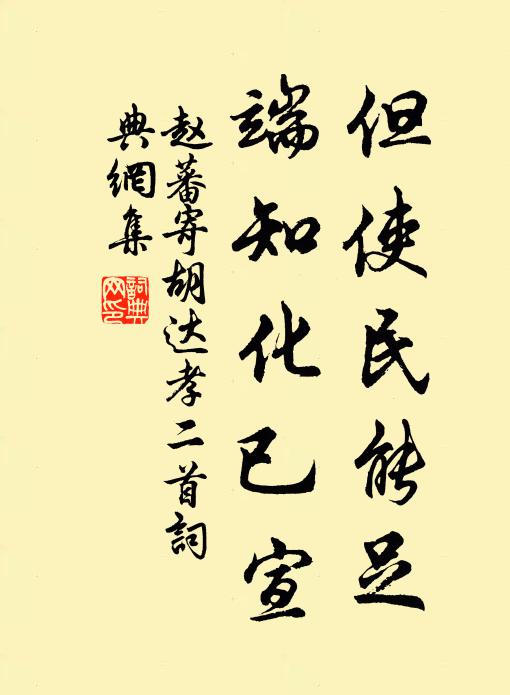 但使民能足
端知化已宣
赵蕃寄胡达孝二首詞
典網集
詞典網印